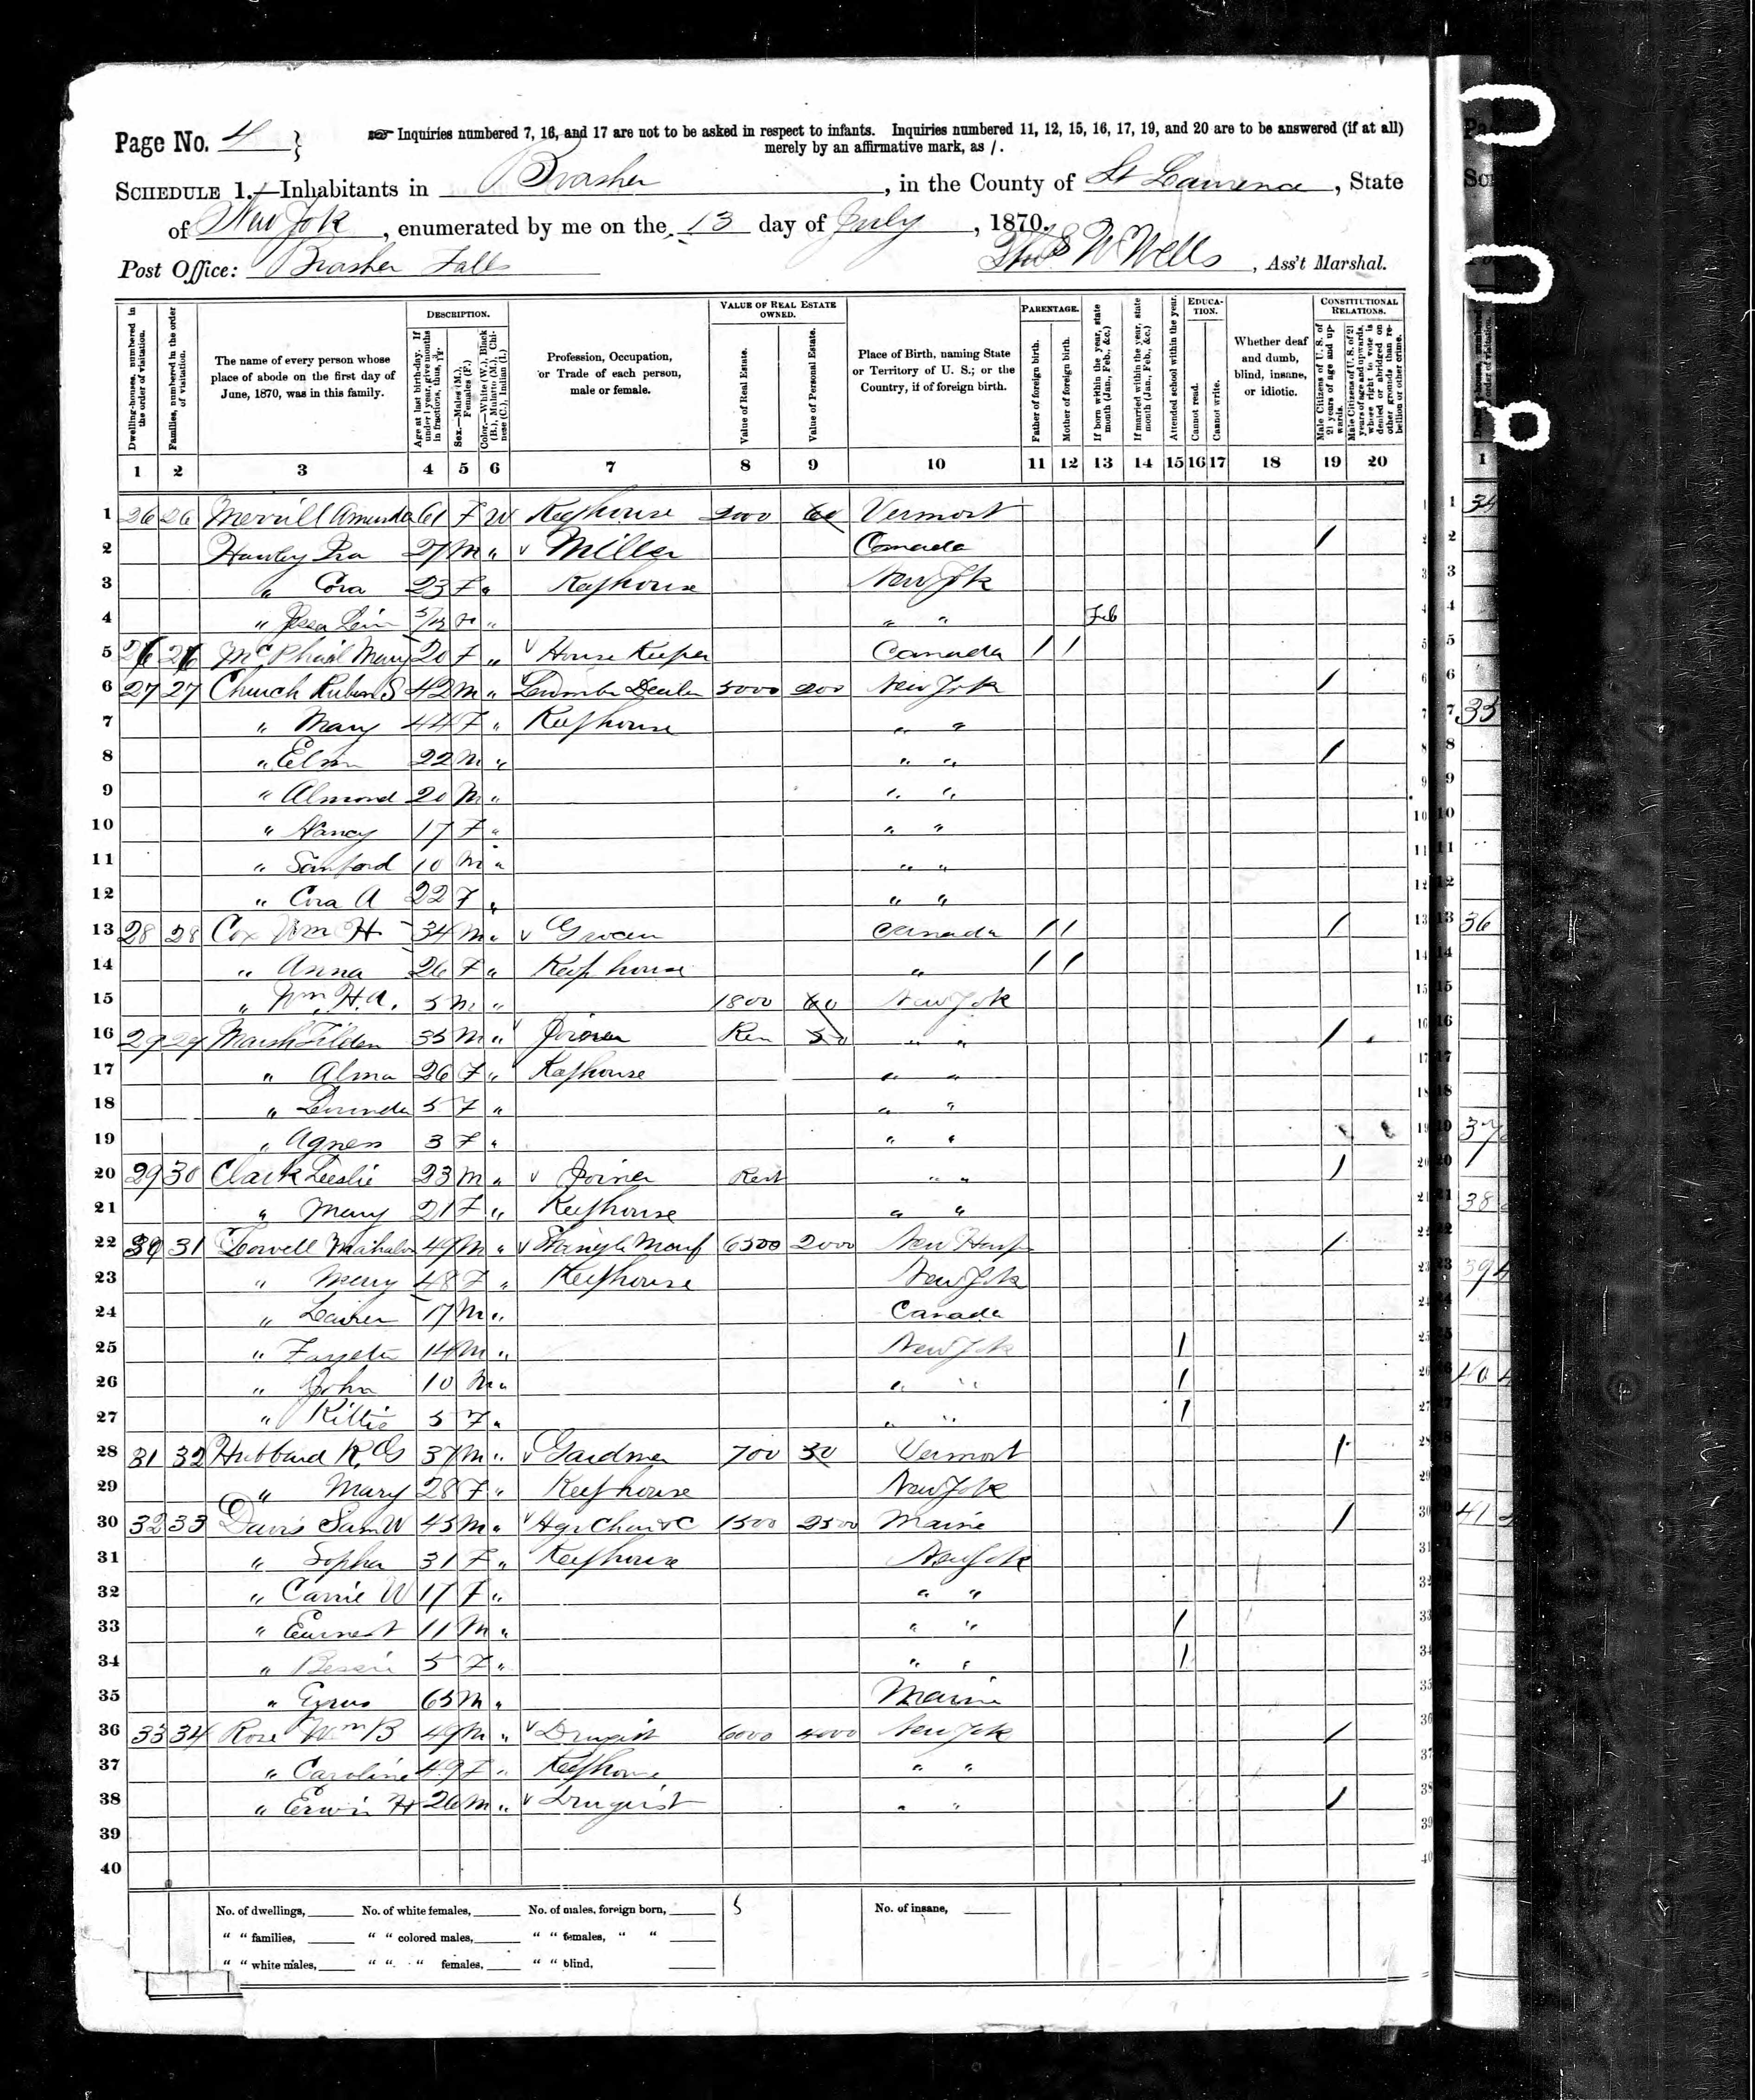 Page No. 4
Inquiries numbered 7, 16, and 17 are not to be asked in respect to infants. Inquiries numbered 11, 12, 15, 16, 17, 19, and 20 are to be answered (if at all)
merely by an affirmative mark, as /.
SCHEDULE 1.—Inhabitants in Brasher, in the County of St Lawrence, State
of New York, enumerated by me on the 13 day of July, 1870.
Post Office: Brasher Falls W Wells, Ass't Marshal.
DESCRIPTION. VALUE OF REAL ESTATE OWNED. PARENTAGE. EDUCATION. CONSTITUTIONAL RELATIONS.
Dwelling-houses, numbered in the order of visitation.
Families, numbered in the order of visitation.
The name of every person whose place of abode on the first day of June, 1870, was in this family.
Age at last birth-day. If under 1 year, give months in fractions, thus, 3/12.
Sex.—Males (M.), Females (F.)
Color.—White (W.), Black (B.), Mulatto (M.), Chinese (C.), Indian (I.)
Profession, Occupation, or Trade of each person, male or female.
Value of Real Estate.
Value of Personal Estate.
Place of Birth, naming State or Territory of U. S.; or the Country, if of foreign birth.
Father of foreign birth.
Mother of foreign birth.
If born within the year, state month (Jan., Feb., &c.)
If married within the year, state month (Jan., Feb., &c.)
Attended school within the year.
Cannot read.
Cannot write.
Whether deaf and dumb, blind, insane, or idiotic.
Male Citizens of U. S. of 21 years of age and upwards.
Male Citizens of U. S. of 21 years of age and upwards, whose right to vote is denied or abridged on other grounds than rebellion or other crime.
1 2 3 4 5 6 7 8 9 10 11 12 13 14 15 16 17 18 19 20
1 26 26 Merrill Amanda 61 F W Keephouse 2000 60 Vermont
2 Hawley Ira 27 M " Miller Canada /
3 " Cora 23 F " Keephouse New York
4 " 5/12 " " " Feb
5 26 26 McPhail Mary 20 F " House Keeper Canada / /
6 27 27 Church Ruben S 42 M " Lumber Dealer 3000 200 New York /
7 " Mary 44 F " Keephouse " "
8 " 22 M " " " /
9 " Almond 20 M " " "
10 " Nancy 17 F " " "
11 " Sanford 10 M " " "
12 " Cora A 22 F " " "
13 28 28 Cox Wm H 34 M " Grocer Canada / / /
14 " Anna 26 F " Keep house " / /
15 " Wm H. A. 5 M " 1800 60 New York
16 29 29 Marsh Tilden 35 M " Joiner Ren 50 " " /
17 " Alma 26 F " Keephouse " "
18 " 5 F " " "
19 " Agness 3 F " " "
20 29 30 Clark Leslie 23 M " Joiner Rent " " /
21 " Mary 21 F " Keephouse " "
22 30 31 Lowell Mahalon 49 M " Shingle Manf 6500 2000 New Hamp /
23 " Mary 48 F " Keephouse New York
24 " 17 M " Canada
25 " 14 M " New York /
26 " John 10 M " " " /
27 " Kittie 5 F " " " /
28 31 32 Hubbard R. G 37 M " Gardner 700 30 Vermont /
29 " Mary 28 F " Keephouse New York
30 32 33 Davis Sam W 45 M " 1500 2500 Maine /
31 " Sopha 31 F " Keephouse New York
32 " Carrie W 17 F " " "
33 " Earnest 11 M " " " /
34 " Bessie 5 F " " " /
35 " Cyrus 65 M " Maine
36 33 34 Rose Wm B 49 M " Drugist 6000 4000 New York /
37 " Caroline 49 F " Keephouse " "
38 " Erwin H 26 M " Drugist " " /
39
40
No. of dwellings, No. of white females, No. of males, foreign born, 5 No. of insane,
" " families, " " colored males, " " females, " "
" " white males, " " " females, " " blind,